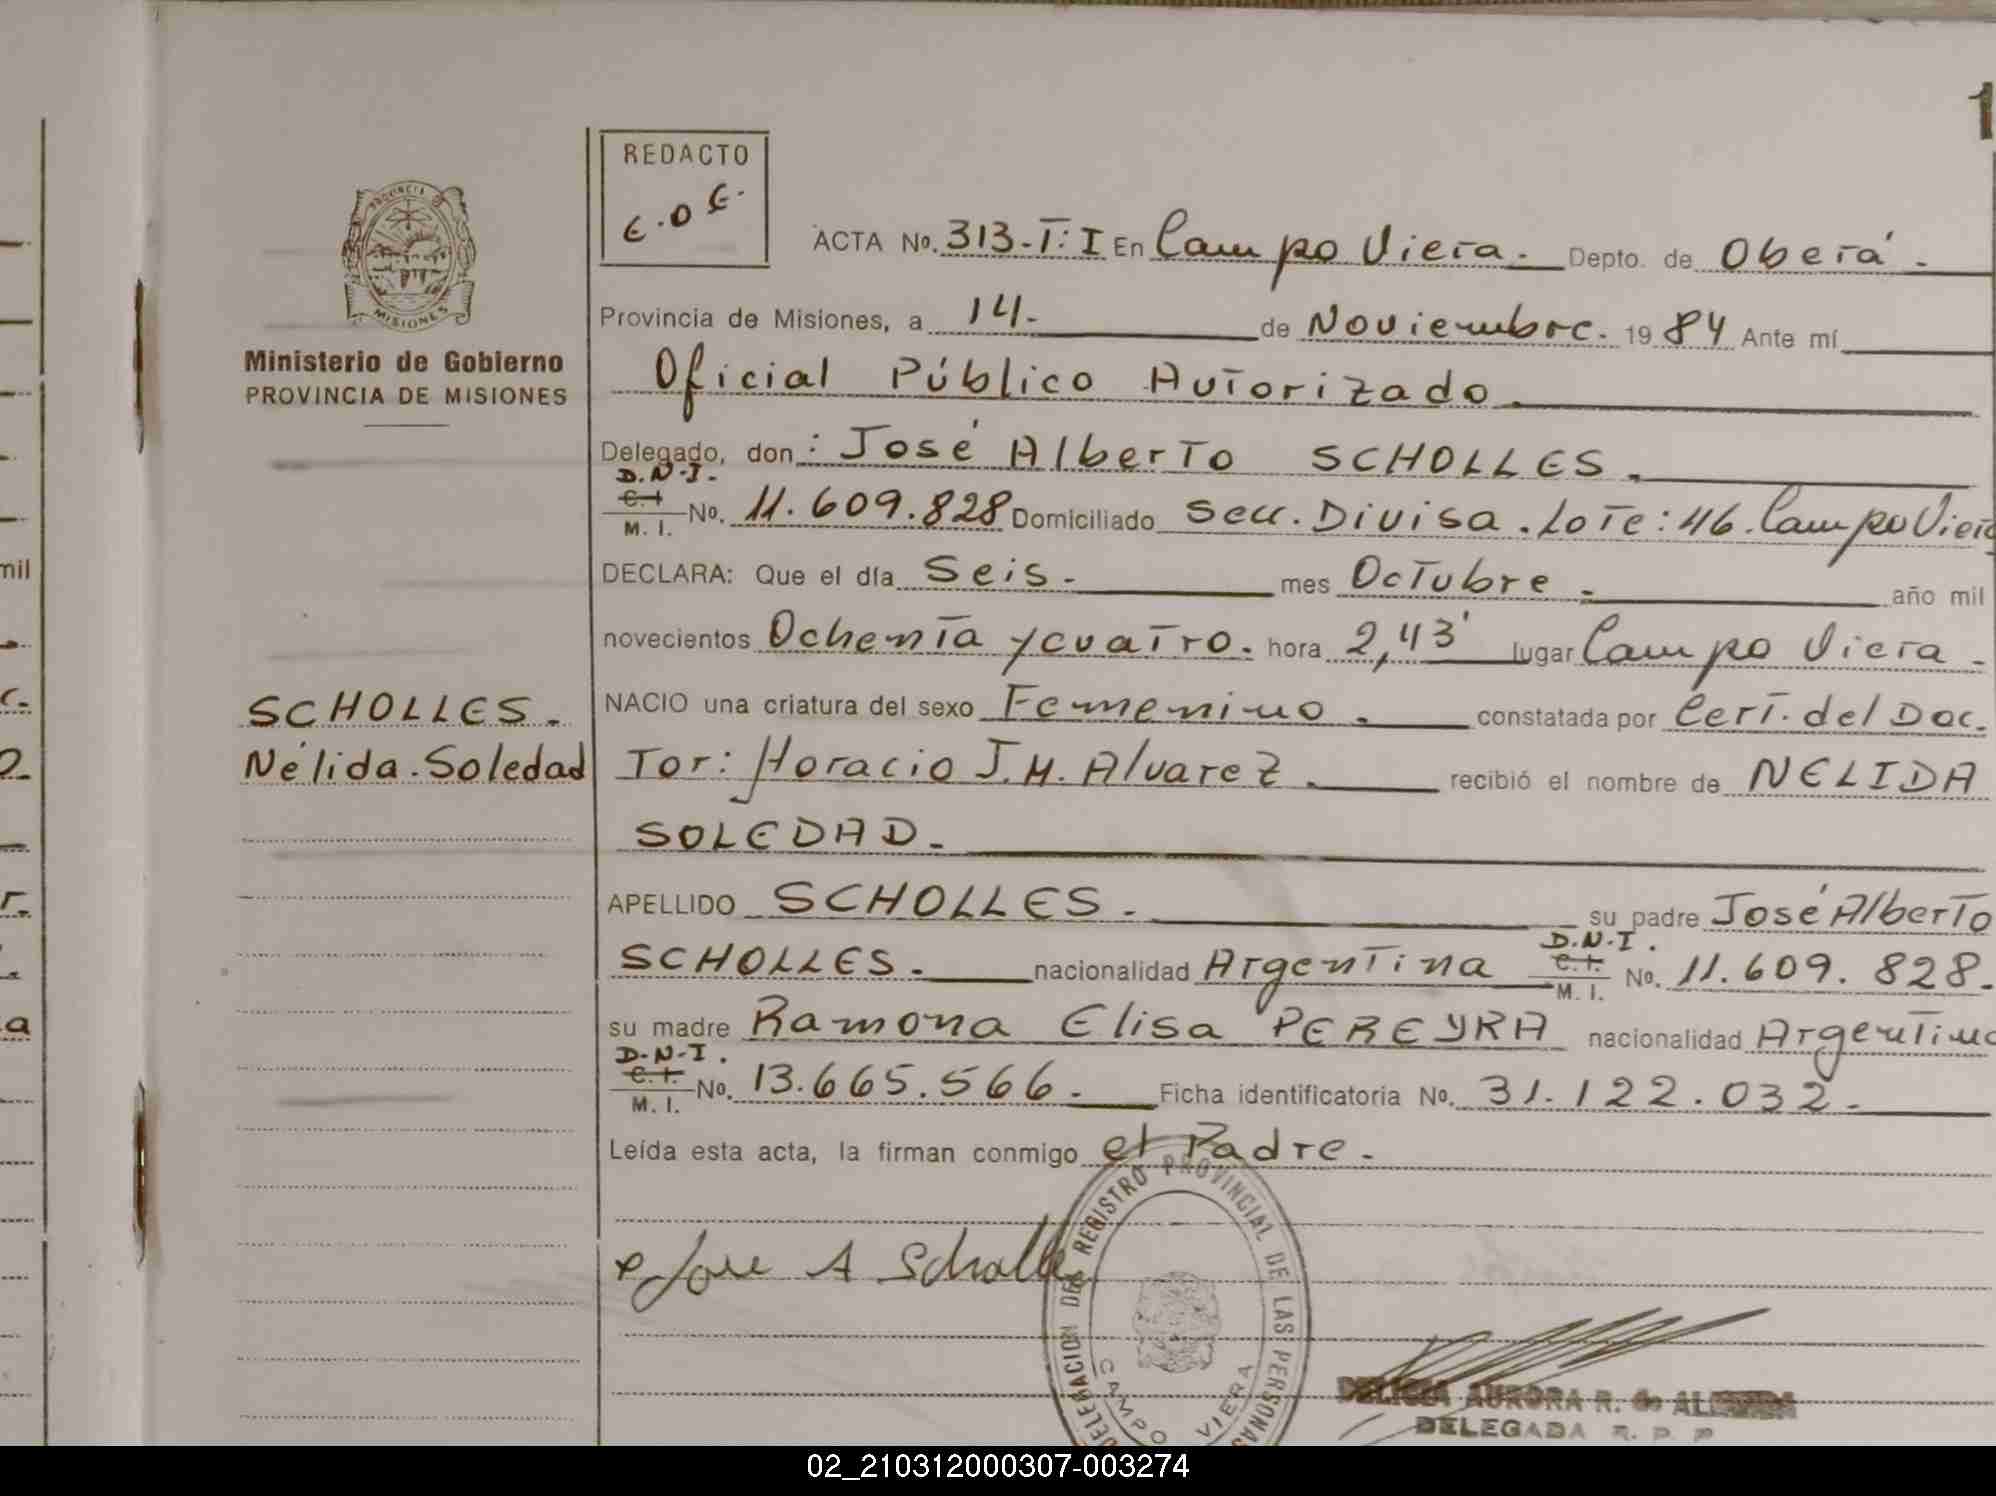 1
REDACTO
E.D.E.
PROVINCIA
MISIONES
Ministerio de Gobierno
PROVINCIA DE MISIONES
ACTA No. 313-T: I En Campo Viera. Depto. de Oberá.
Provincia de Misiones, a 14. de Noviembre. 1984 Ante mí
Oficial Público Autorizado.
Delegado, don: José Alberto SCHOLLES.
D.N.I.
C.I.
M. I. No. 11.609.828 Domiciliado Secc. Divisa. Lote: 46. Campo Viera
DECLARA: Que el día Seis. mes Octubre. año mil
novecientos Ochenta y cuatro. hora 2,43' lugar Campo Viera
NACIO una criatura del sexo Femenino. constatada por Cert. del Doc.
SCHOLLES.
Nélida. Soledad
Tor: Horacio J.M. Alvarez. recibió el nombre de NELIDA
SOLEDAD.
APELLIDO SCHOLLES. su padre José Alberto
SCHOLLES. nacionalidad Argentina D.N.I. C.I. M. I. No. 11.609.828.
su madre Ramona Elisa PEREYRA nacionalidad Argentina
D.N.I.
C.I.
M. I. No. 13.665.566. Ficha identificatoria No. 31.122.032.
Leída esta acta, la firman conmigo el Padre.
Jose A Scholles
DELEGACION DEL REGISTRO PROVINCIAL DE LAS PERSONAS
CAMPO VIERA
DELICIA AURORA R. de ALMEIDA
DELEGADA R. P. P
mil
a
02_210312000307-003274